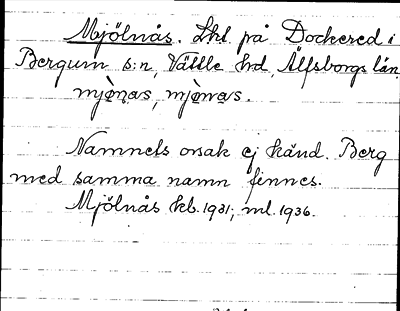 Mjölnås. Lhl. på Dockered i
Bergum s:n, Vättle hd, Älfsborgs län.
mjò̤nas, mjò̤nas.
Namnets orsak ej känd. Berg
med samma namn finnes.
Mjölnås kb. 1931; ml. 1936.